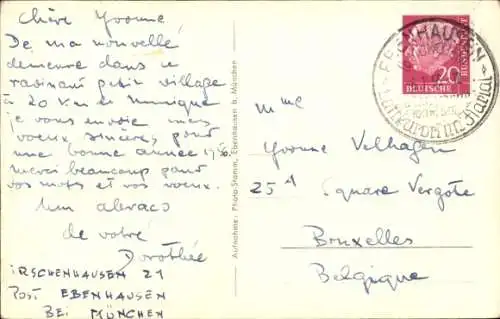 Chère Yvonne
De ma nouvelle
demeure dans ce
ravissant petit village
à 20 Km de Munique
je vous envoie mes
voeux sincères pour
une bonne année 1956.
Merci beaucoup pour
vos mots et vos voeux.
Um abraço
de votre
Dorothée
IRSCHENHAUSEN 21
POST EBENHAUSEN
BEI MÜNCHEN
Aufnahme: Photo-Stamm, Ebenhausen b. München
DEUTSCHE
BUNDESPOST
20
EBENHAUSEN
Luftkurort im Isartal
Mme
Yvonne Velhagen
25 A Square Vergote
Bruxelles
Belgique